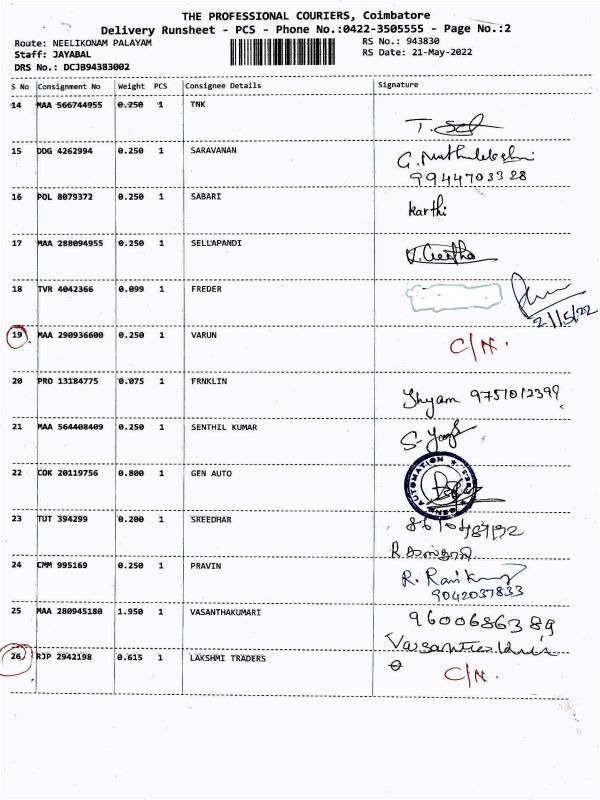 THE PROFESSIONAL COURIERS, Coimbatore
Delivery Runsheet - PCS - Phone No.:0422-3505555 - Page No.:2
Route: NEELIKONAM PALAYAM
RS No.: 943830
Staff: JAYABAL
RS Date: 21-May-2022
DRS No.: DCJB94383002
S No Consignment No Weight PCS Consignee Details Signature
14 MAA 566744955 0.250 1 TNK
15 DDG 4262994 0.250 1 SARAVANAN
9944703328
16 POL 8079372 0.250 1 SABARI
karthi
17 MAA 288094955 0.250 1 SELLAPANDI
V. Geetha
18 TVR 4042366 0.099 1 FREDER
21/5/22
19 MAA 290936600 0.250 1 VARUN
C/N.
20 PRO 13184775 0.075 1 FRNKLIN
Shyam 9751012399
21 MAA 564408409 0.250 1 SENTHIL KUMAR
22 COK 20119756 0.800 1 GEN AUTO
AUTOMATION
23 TUT 394299 0.200 1 SREEDHAR
24 CMM 995169 0.250 1 PRAVIN
9042037833
25 MAA 280945180 1.950 1 VASANTHAKUMARI
9600686389
26 RJP 2942198 0.615 1 LAKSHMI TRADERS
C/N.